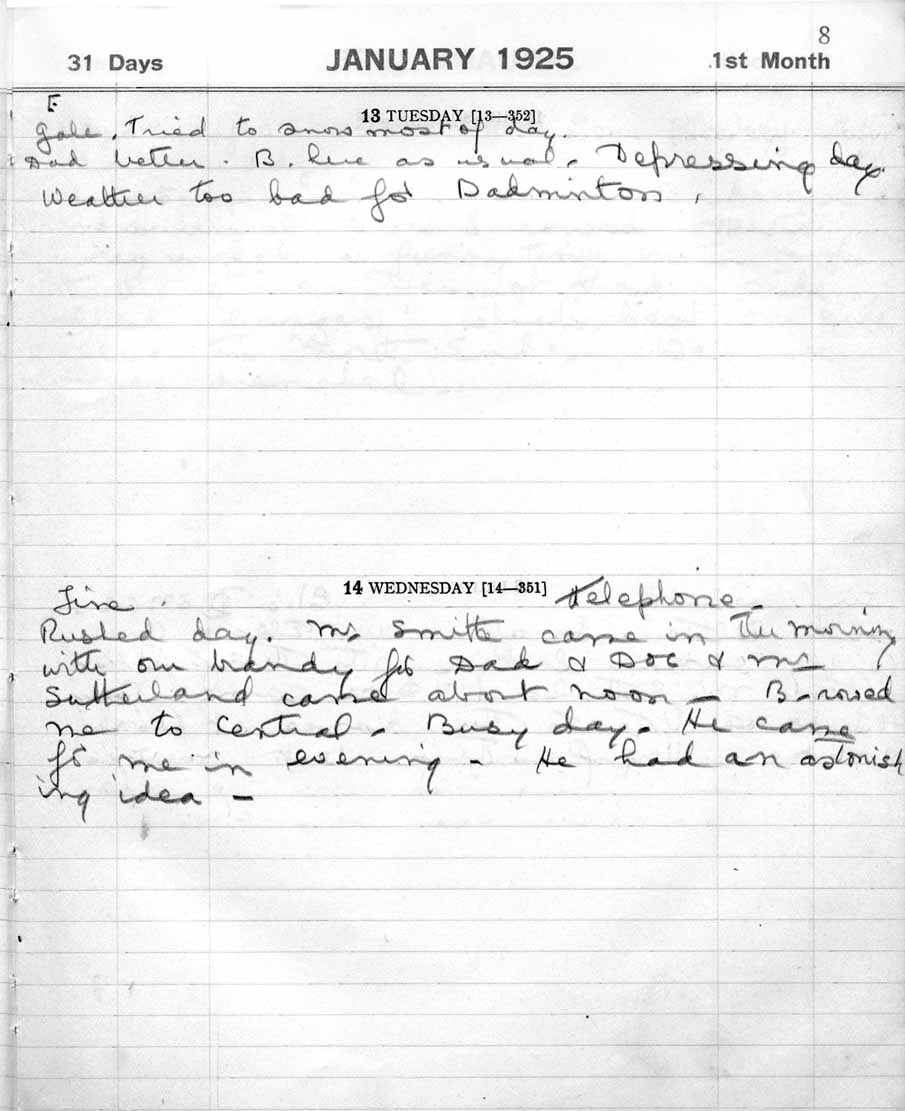 8
31 Days JANUARY 1925 1st Month
E
13 TUESDAY [13—352]
Gale. Tried to snow most of day.
Dad better. B. here as usual. Depressing day.
Weather too bad for Badminton.
14 WEDNESDAY [14—351]
Fine. Telephone -
Rushed day. Mr Smith came in the morning
with our brandy for Dad & Doc & Mr
Sutherland came about noon - B. rowed
me to Central. Busy day. He came
for me in evening - He had an astonish
ing idea -